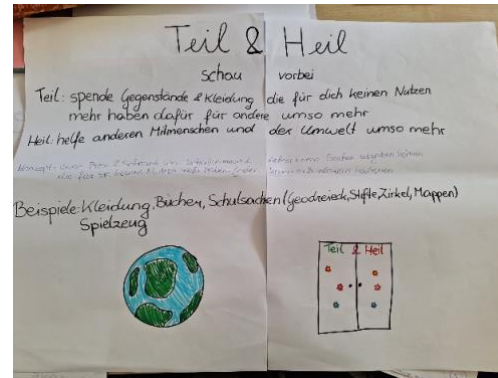 Teil & Heil
schau vorbei
Teil: spende Gegenstände & Kleidung die für dich keinen Nutzen
mehr haben dafür für andere umso mehr
Heil: helfe anderen Mitmenschen und der Umwelt umso mehr
Beispiele: Kleidung, Bücher, Schulsachen (Geodreieck, Stifte, Zirkel, Mappen)
Spielzeug
Teil & Heil